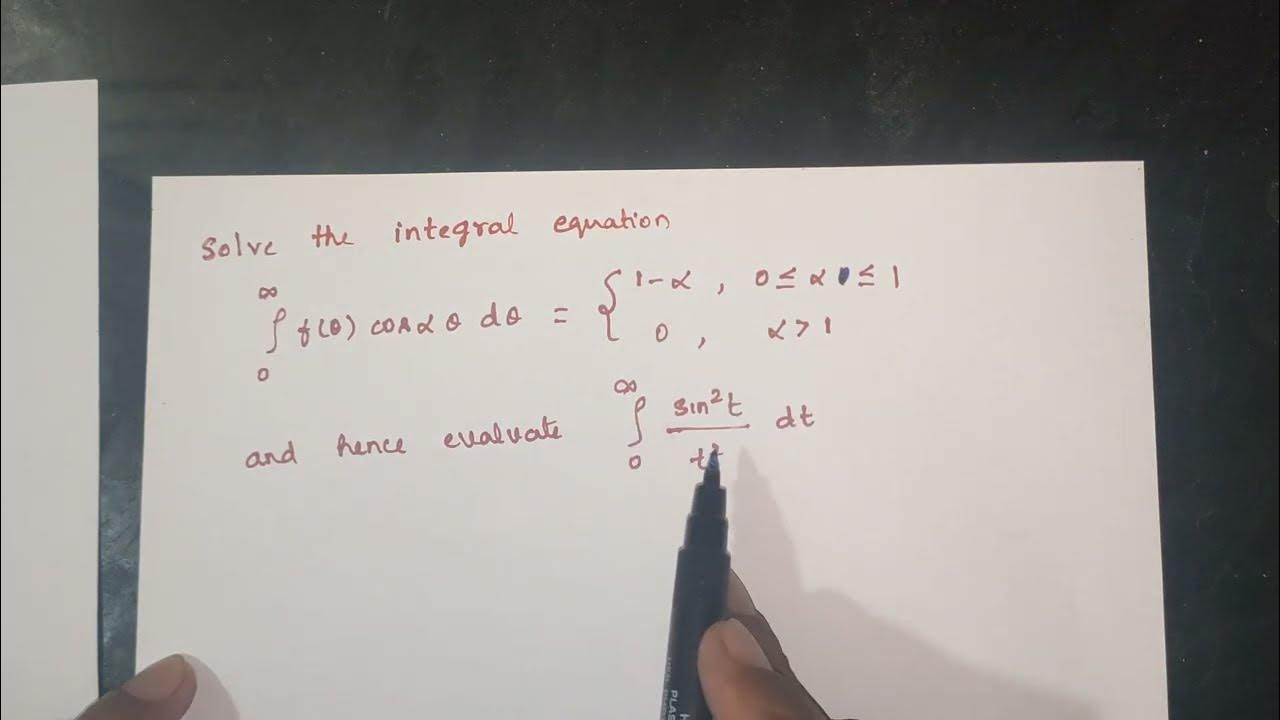 Solve the integral equation
∫₀^∞ f(θ) cos α θ dθ = { 1-α , 0 ≤ α ≤ 1
0 , α > 1
and hence evaluate ∫₀^∞ sin²t / t² dt